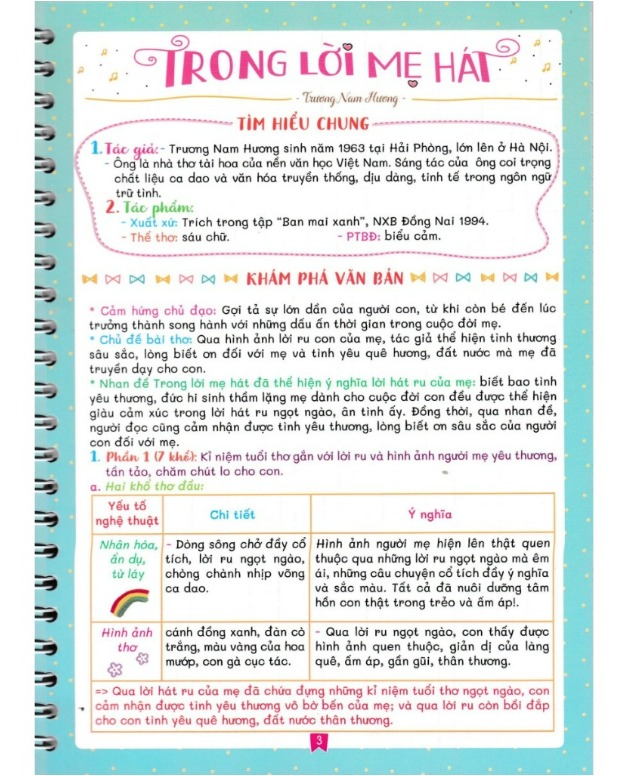 TRONG LỜI MẸ HÁT
- Trương Nam Hương -
TÌM HIỂU CHUNG
1. Tác giả: - Trương Nam Hương sinh năm 1963 tại Hải Phòng, lớn lên ở Hà Nội.
- Ông là nhà thơ tài hoa của nền văn học Việt Nam. Sáng tác của ông coi trọng
chất liệu ca dao và văn hóa truyền thống, dịu dàng, tinh tế trong ngôn ngữ
trữ tình.
2. Tác phẩm:
- Xuất xứ: Trích trong tập "Ban mai xanh", NXB Đồng Nai 1994.
- Thể thơ: sáu chữ. - PTBĐ: biểu cảm.
KHÁM PHÁ VĂN BẢN
* Cảm hứng chủ đạo: Gợi tả sự lớn dần của người con, từ khi còn bé đến lúc
trưởng thành song hành với những dấu ấn thời gian trong cuộc đời mẹ.
* Chủ đề bài thơ: Qua hình ảnh lời ru con của mẹ, tác giả thể hiện tình thương
sâu sắc, lòng biết ơn đối với mẹ và tình yêu quê hương, đất nước mà mẹ đã
truyền dạy cho con.
* Nhan đề Trong lời mẹ hát đã thể hiện ý nghĩa lời hát ru của mẹ: biết bao tình
yêu thương, đức hi sinh thầm lặng mẹ dành cho cuộc đời con đều được thể hiện
giàu cảm xúc trong lời hát ru ngọt ngào, ân tình ấy. Đồng thời, qua nhan đề,
người đọc cũng cảm nhận được tình yêu thương, lòng biết ơn sâu sắc của người
con đối với mẹ.
1. Phần 1 (7 khổ): Kỉ niệm tuổi thơ gắn với lời ru và hình ảnh người mẹ yêu thương,
tần tảo, chăm chút lo cho con.
a. Hai khổ thơ đầu:
Yếu tố
nghệ thuật
Chi tiết
Ý nghĩa
Nhân hóa,
ẩn dụ,
từ láy
- Dòng sông chở đầy cổ
tích, lời ru ngọt ngào,
chòng chành nhịp võng
ca dao.
Hình ảnh người mẹ hiện lên thật quen
thuộc qua những lời ru ngọt ngào mà êm
ái, những câu chuyện cổ tích đầy ý nghĩa
và sắc màu. Tất cả đã nuôi dưỡng tâm
hồn con thật trong trẻo và ấm áp!.
Hình ảnh
thơ
cánh đồng xanh, đàn cò
trắng, màu vàng của hoa
mướp, con gà cục tác.
- Qua lời ru ngọt ngào, con thấy được
hình ảnh quen thuộc, giản dị của làng
quê, ấm áp, gần gũi, thân thương.
=> Qua lời hát ru của mẹ đã chứa đựng những kỉ niệm tuổi thơ ngọt ngào, con
cảm nhận được tình yêu thương vô bờ bến của mẹ; và qua lời ru còn bồi đắp
cho con tình yêu quê hương, đất nước thân thương.
3